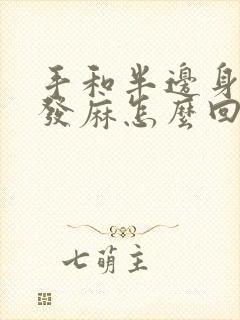 手和半邊身
發麻怎麼回
七萌主